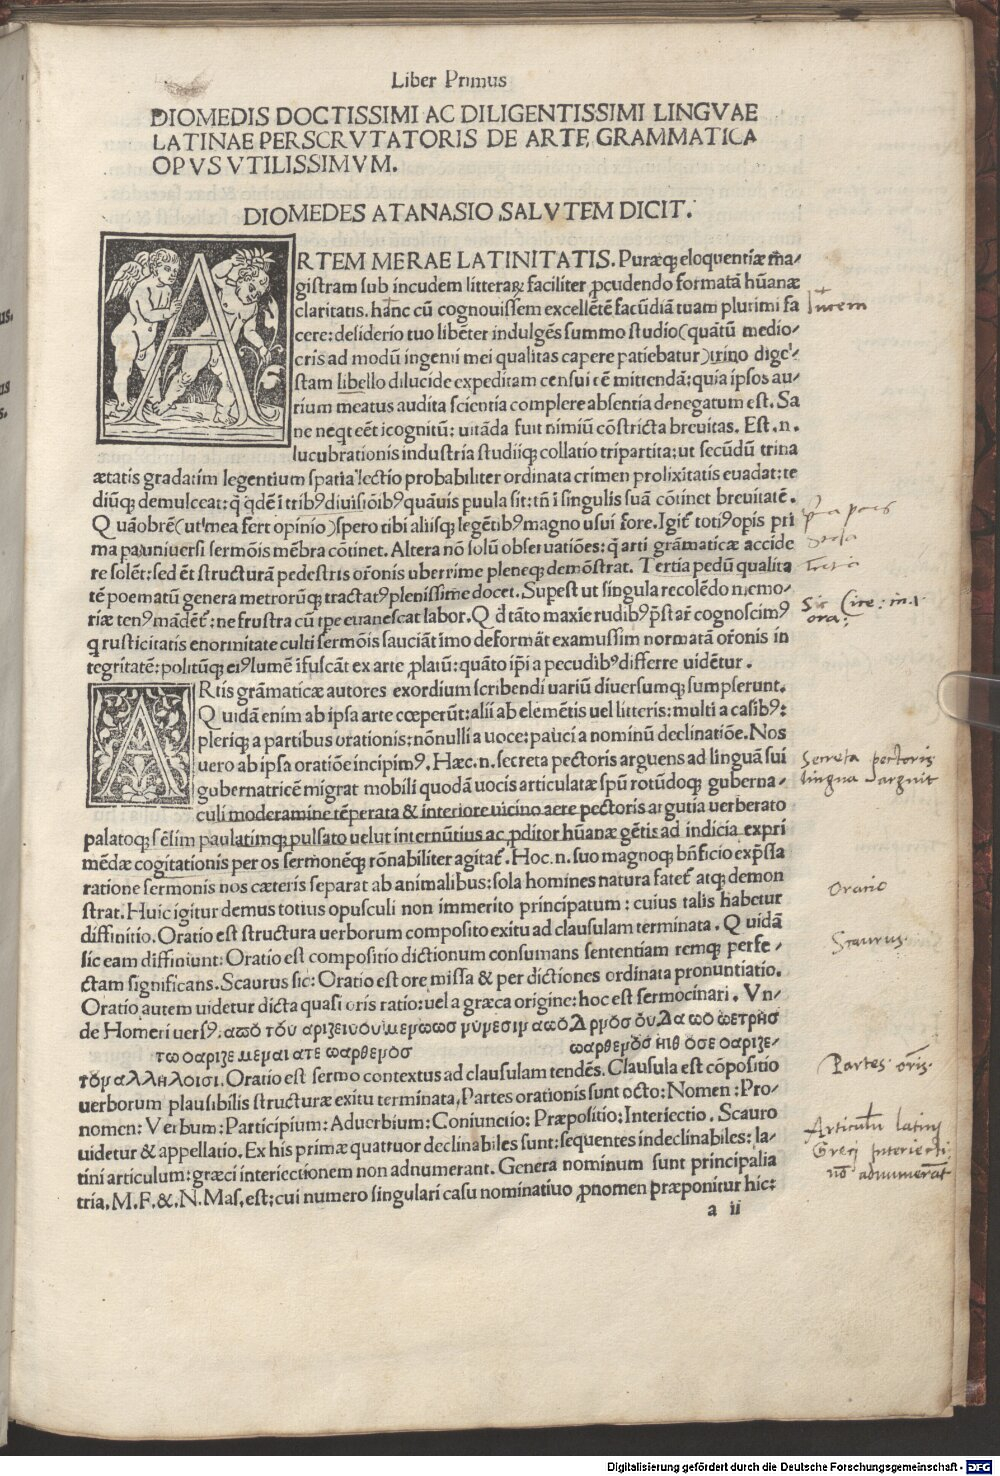 Liber Primus
DIOMEDIS DOCTISSIMI AC DILIGENTISSIMI LINGVAE
LATINAE PERSCRVTATORIS DE ARTE GRAMMATICA
OPVS VTILISSIMVM.
DIOMEDES ATANASIO SALVTEM DICIT.
ARTEM MERAE LATINITATIS. Puræq; eloquentiæ ma-
gistram sub incudem litteraꝝ faciliter ꝓcudendo formatā hūanæ
claritatis. hanc cū cognouissem excellētē facūdiā tuam plurimi fa
cere: desiderio tuo libēter indulgēs summo studio (quātū medio-
cris ad modū ingenii mei qualitas capere patiebatur) trino dige-
stam libello dilucide expeditam censui eē mittendā: quia ipsos au-
rium meatus audita scientia complere absentia denegatum est. Sa
ne neqt eēt icognitū: uitāda fuit nimiū cōstricta breuitas. Est.n.
lucubrationis industria studiiq; collatio tripartita: ut secūdū trina
ætatis gradatim legentium spatia lectio probabiliter ordinata crimen prolixitatis euadat: te
diūq; demulceat: q̄ qdē ī tribꝰ diuisiōibꝰ quāuis puula sit: tn̄ ī singulis suā cōtinet breuitatē.
Quāobrē (ut mea fert opinio) spero tibi aliisq; legētibꝰ magno usui fore. Igit̄ totiꝰ opis pri
ma pauniuersi sermōis mēbra cōtinet. Altera nō solū obseruatiōes: q̄ arti grāmaticæ accide
re solēt: sed ēt structurā pedestris or̄onis uberrime pleneq; demōstrat. Tertia pedū qualita
tē poematū genera metrorūq; tractatꝰ plenissime docet. Supest ut singula recolēdo memo-
riæ tenꝰ mādēt̄: ne frustra cū tpe euanescat labor. Qd tāto maxīe rudibꝰ p̄star̄ cognoscimꝰ
q rusticitatis enormitate culti sermōis sauciāt īmo deformāt examussim normatā or̄onis in
tegritatē: politūq; eiꝰ lumē īfuscāt ex arte ꝓlatū: quāto ip̄i a pecudibꝰ differre uidētur.
ARtis grāmaticæ autores exordium scribendi uariū diuersumq; sumpserunt.
Quidā enim ab ipsa arte cœperūt: alii ab elemētis uel litteris: multi a casibꝰ:
pleriq; a partibus orationis: nōnulli a uoce: pauci a nominū declinatiōe. Nos
uero ab ipsa oratiōe incipimꝰ. Hæc.n. secreta pectoris arguens ad linguā sui
gubernatricē migrat mobili quodā uocis articulatæ spū rotūdoq; guberna-
culi moderamine tēperata & interiore uicino aere pectoris argutia uerberato
palatoq; sēlim paulatimq; pulsato uelut internūtius ac ꝓditor hūanæ gētis ad indicia expri
mēdæ cogitationis per os sermonēq; rōnabiliter agitat̄. Hoc.n. suo magnoq; bn̄ficio exp̄ssa
ratione sermonis nos cæteris separat ab animalibus: sola homines natura fatet̄ atq; demon
strat. Huic igitur demus totius opusculi non immerito principatum: cuius talis habetur
diffinitio. Oratio est structura uerborum composito exitu ad clausulam terminata. Quidā
sic eam diffiniunt: Oratio est compositio dictionum consumans sententiam remq; perfe-
ctam significans. Scaurus sic: Oratio est ore missa & per dictiones ordinata pronuntiatio.
Oratio autem uidetur dicta quasi oris ratio: uel a græca origine: hoc est sermocinari. Vn-
de Homeri uersꝰ:
Oratio est sermo contextus ad clausulam tendēs. Clausula est cōpositio
uerborum plausibilis structuræ exitu terminata. Partes orationis sunt octo: Nomen: Pro-
nomen: Verbum: Participium: Aduerbium: Coniunctio: Præpositio: Interiectio. Scauro
uidetur & appellatio. Ex his primæ quattuor declinabiles sunt: sequentes indeclinabiles: la-
tini articulum: græci interiectionem non adnumerant. Genera nominum sunt principalia
tria. M.F.&.N. Mas. est: cui numero singulari casu nominatiuo ꝓnomen præponitur hic:
a ii
Secreta pectoris
lingua arguit
Oratio
Scaurus.
Partes or̄is.
Articulū latini
Greci Interiecti
nō adnumerāt
Digitalisierung gefördert durch die Deutsche Forschungsgemeinschaft - DFG